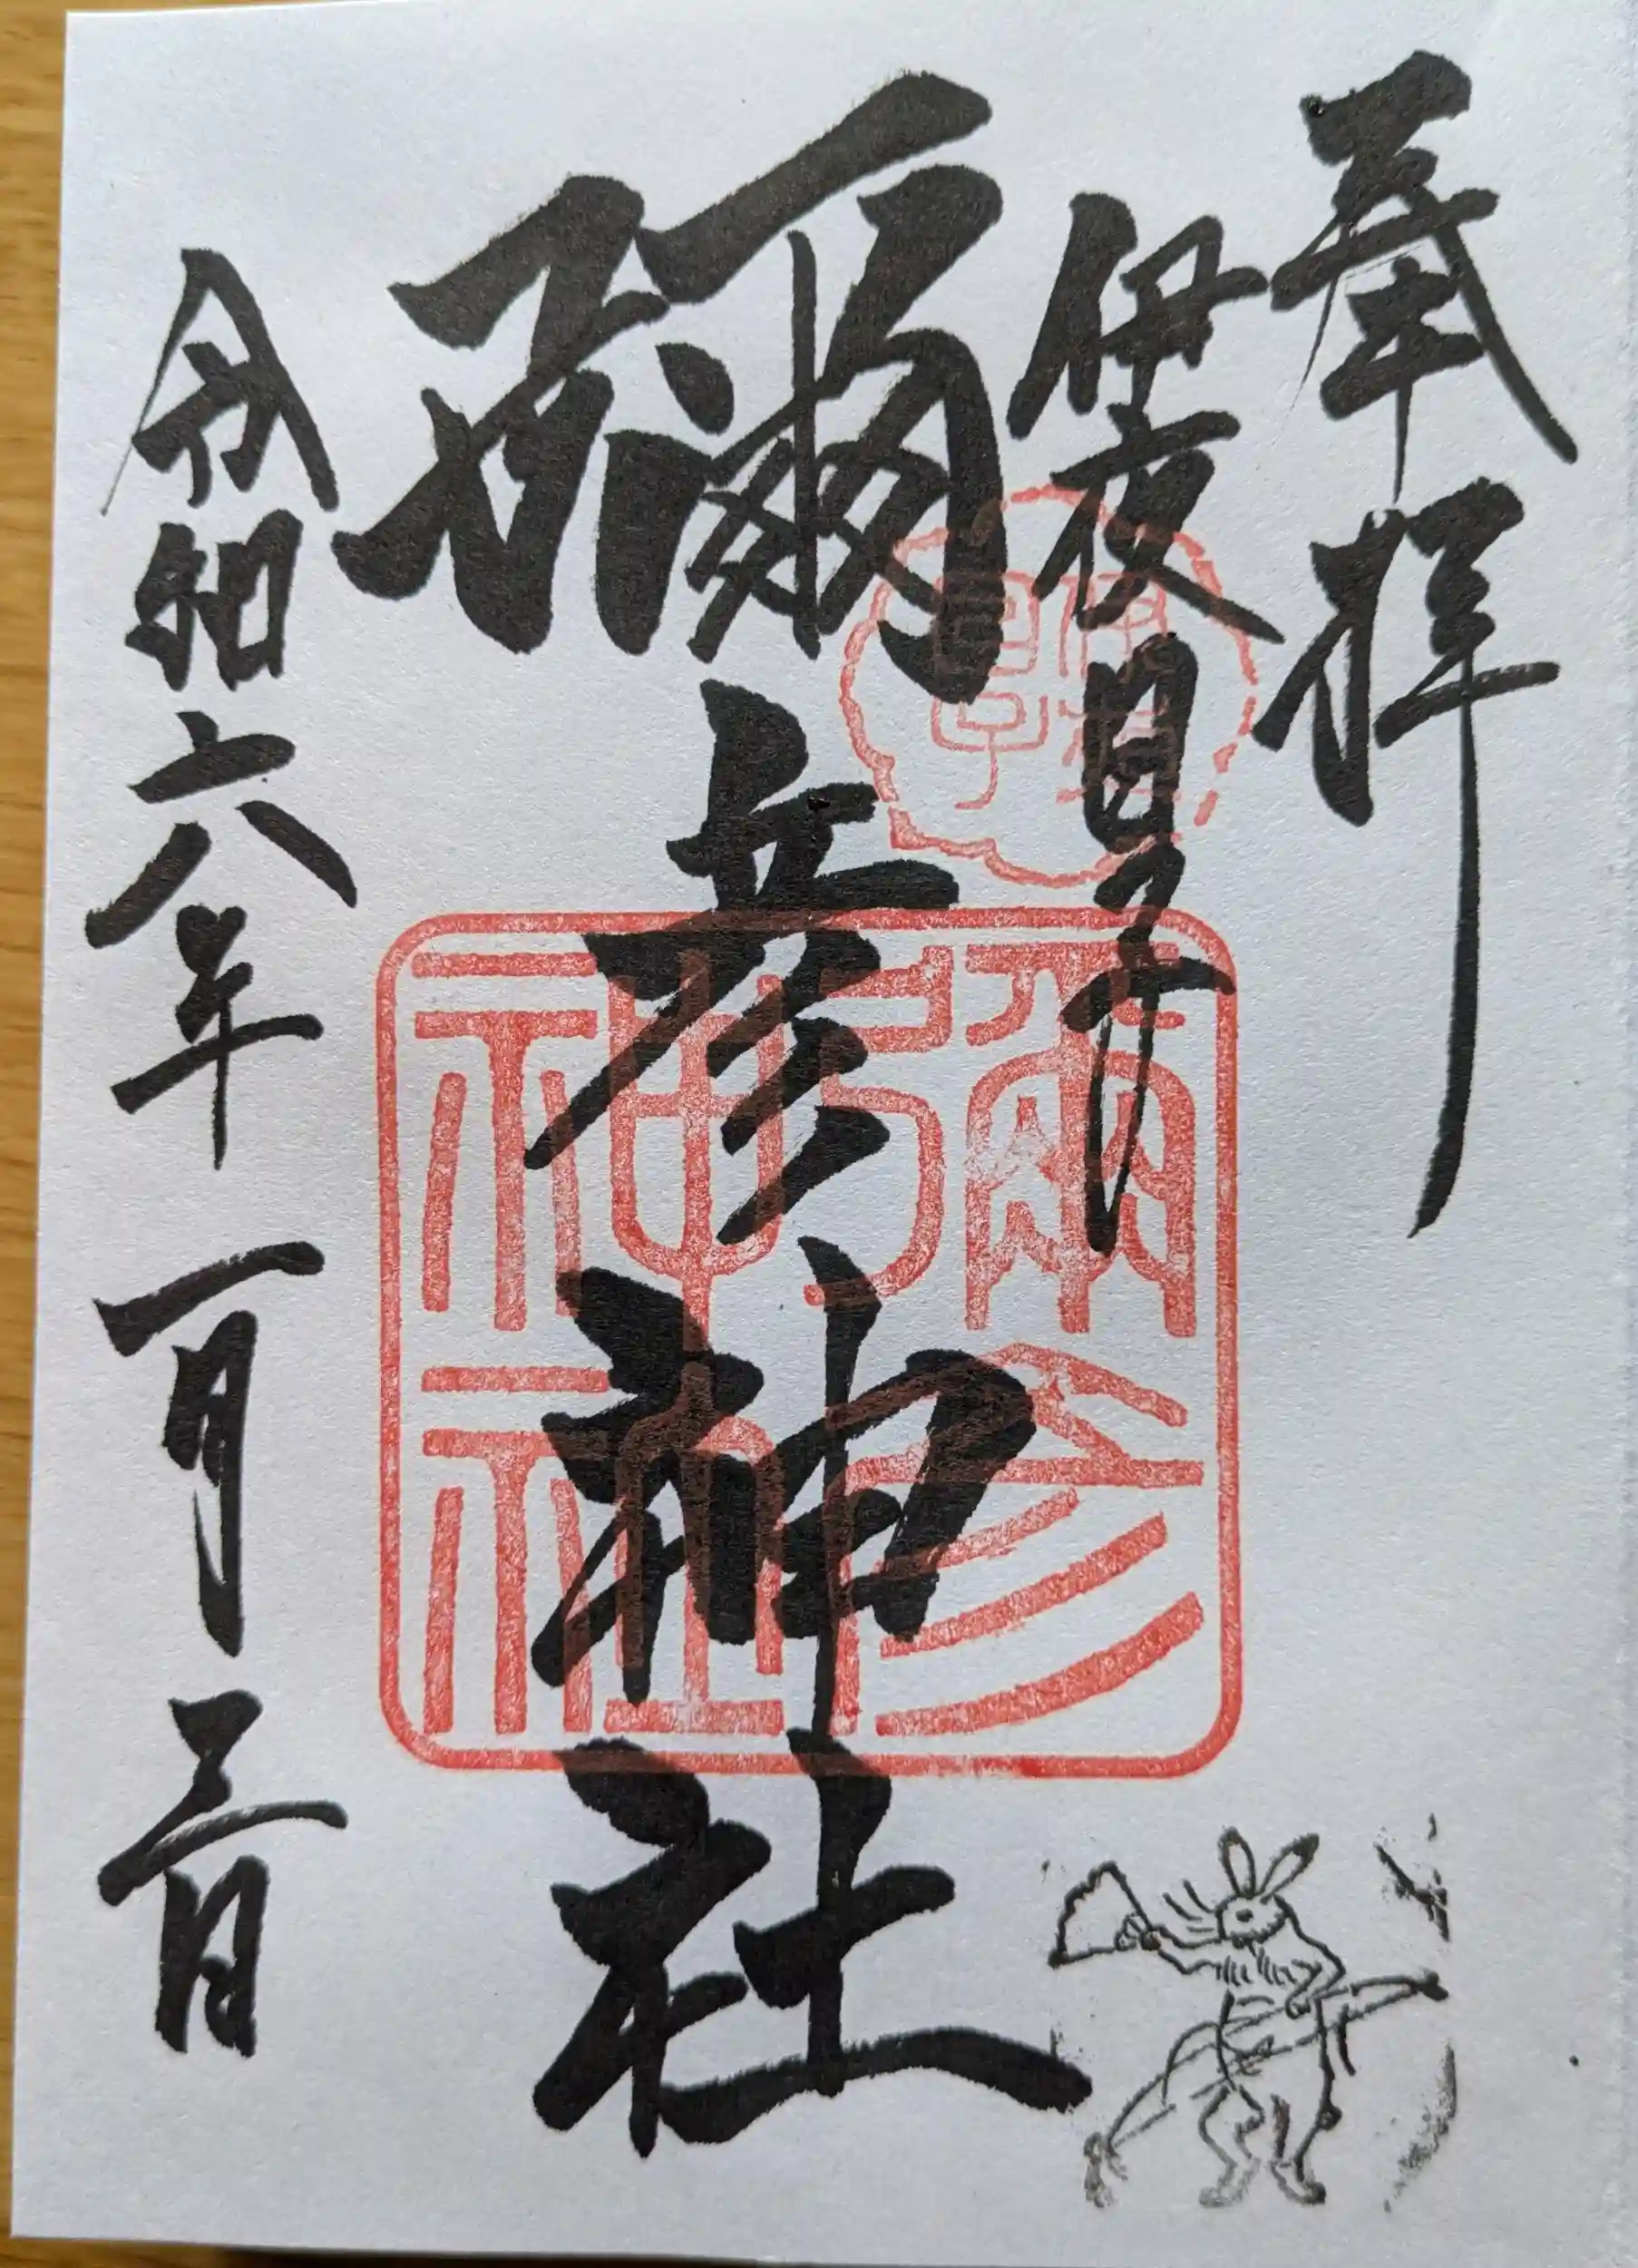 奉拝
伊夜日子
彌彦神社
令和六年一月三日
伊夜日子
彌彦神社